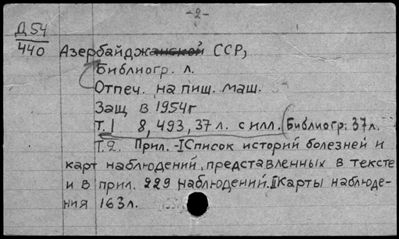 -2-
Д54
440 Азербайджанской ССР,
Библиогр. л.
Отпеч. на пиш. маш.
Защ в 1954г
Т.1 8, 493, 37 л. с илл. (Библиогр: 37л.
Т.2. Прил. - I Список историй болезней и
карт наблюдений, представленных в тексте
и в прил. 229 наблюдений. II Карты наблюде-
ния 163л.